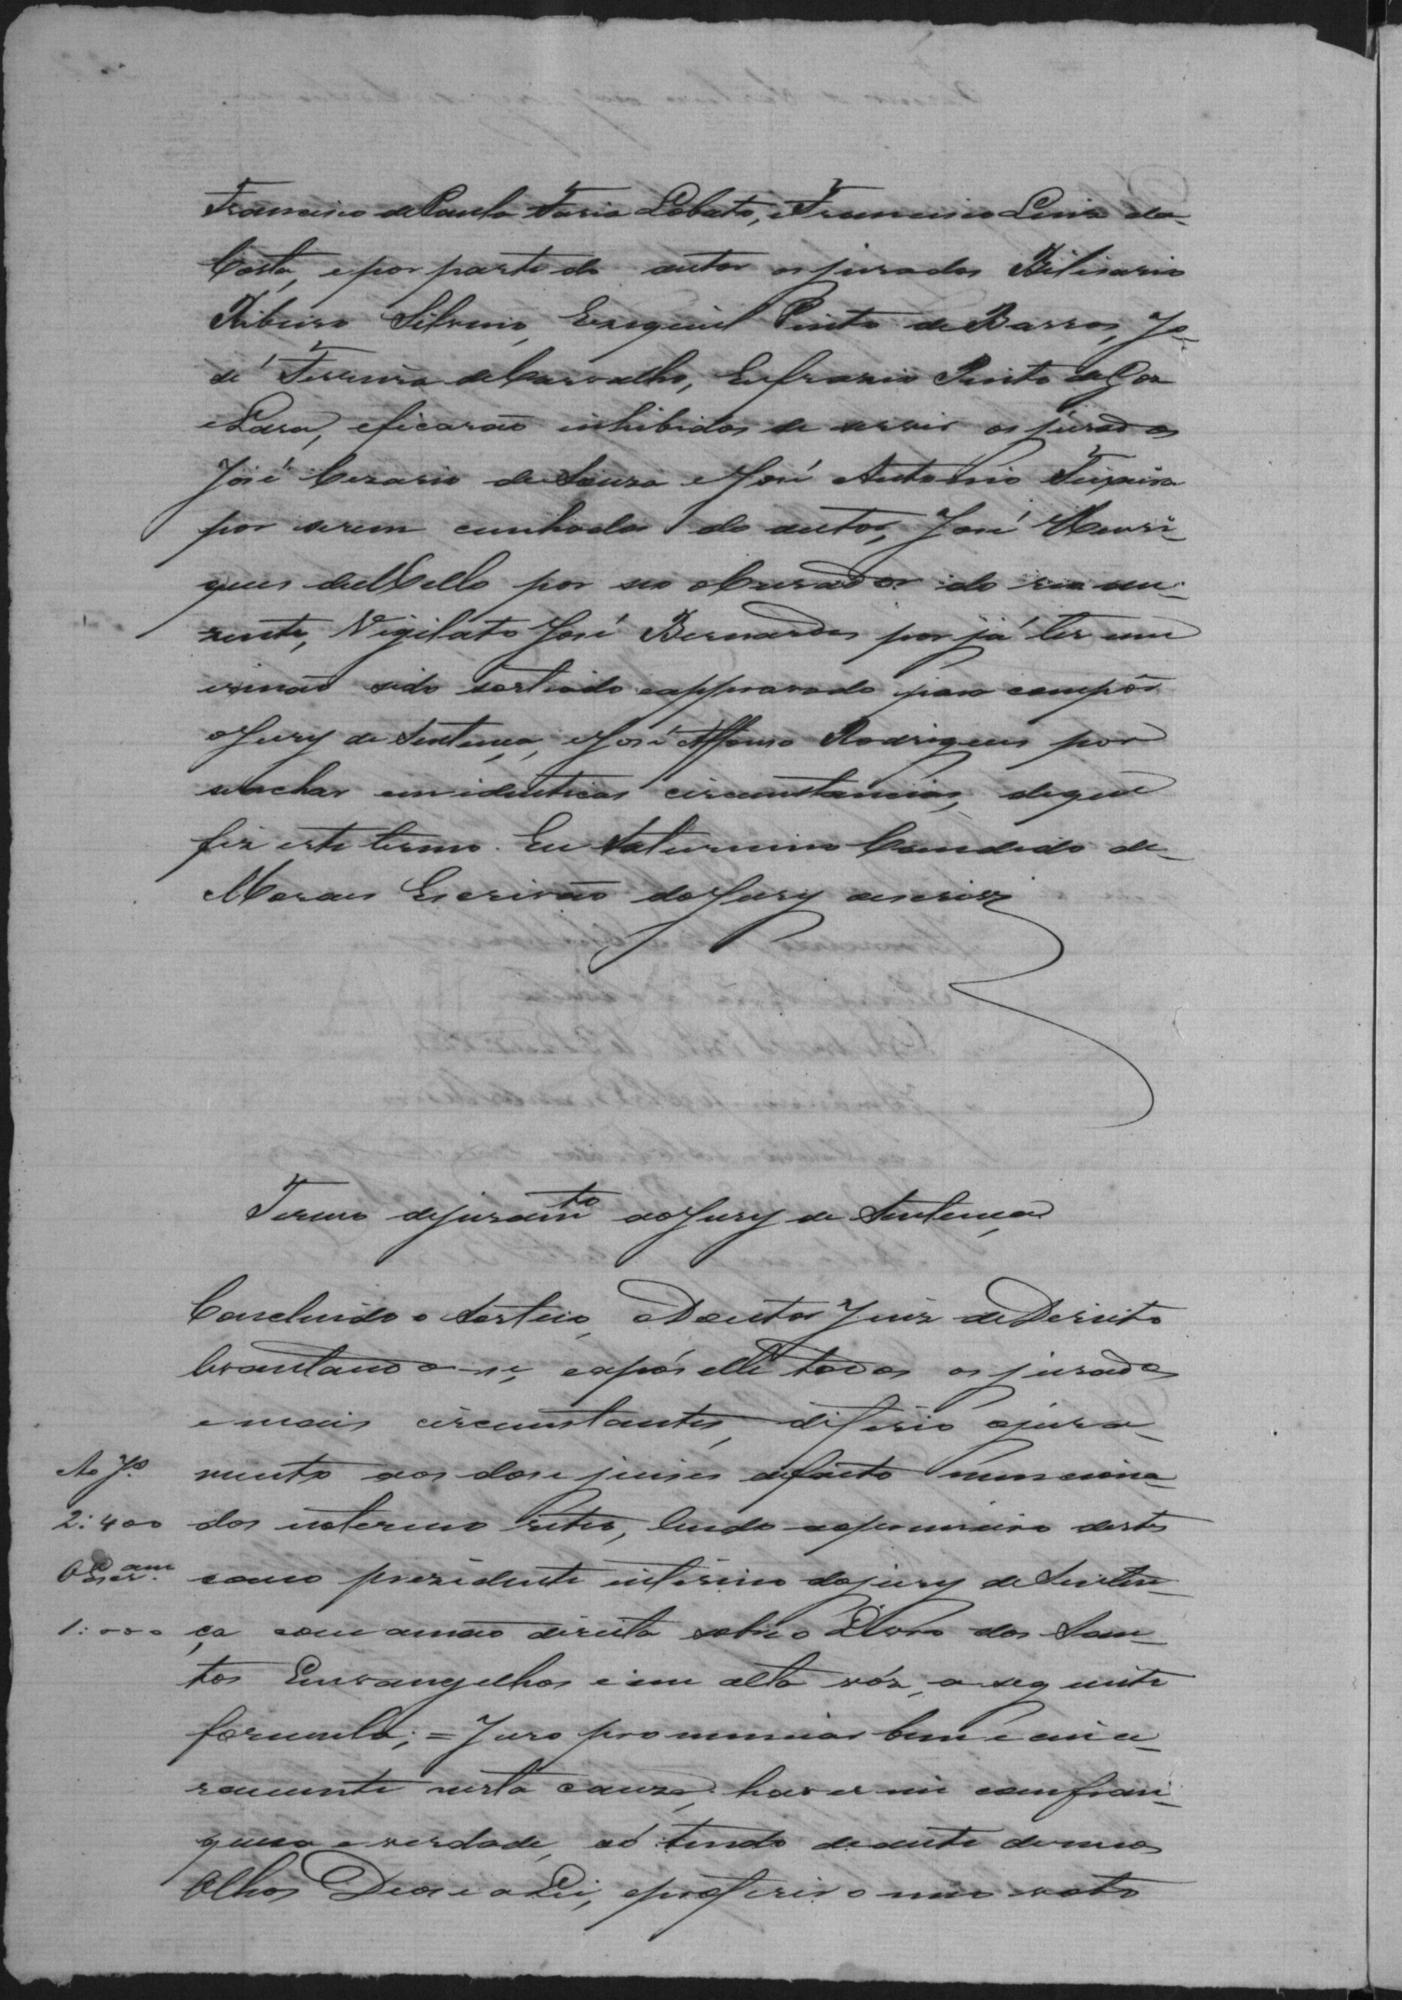 Francisco de Paula Faria Lobato, e Francisco Luiz da
Costa, e por parte do autor os jurados Bilisario
Ribeiro Silverio, Ezequiel Pinto de Barros, Jo-
sé Ferreira de Carvalho, Eufrazio Pinto de Goz
e Lara, e ficarão inhibidos de servir os jurados
José Cezario de Souza e José Antonio Teixeira
por serem cunhados do autor, José Henri-
ques de Mello por ser Curador do reo au-
zente, Vigilato José Bernardes por já ter um
irmão sido sorteado e approvado para compôr
o Jury de Sentença, e José Affonso Rodrigues por
se achar em identicas circumstancias, de que
fiz este termo. Eu Saturnino Candido de
Moraes Escrivão do Jury o escrevi
Termo de juramto ao Jury de Sentença
Concluido o Sorteio, o Doutor Juiz de Direito
levantando-se, e após elle todos os jurados
e mais circumstantes, diferio o jura-
Ao Jo. mento aos dose juises de facto menciona-
2:400 dos no termo retro, lendo o primeiro destes
O Escram. como prezidente interino do jury de Senten-
1:000 ça com a mão direita sobre o Livro dos San-
tos Envangelhos e em alta vóz, a seguinte
formula; = Juro pronunciar bem e since-
ramente nesta cauza, haver-me com fran-
queza e verdade, só tendo deante de meos
Olhos Deos e a Lei, e proferir o meo voto